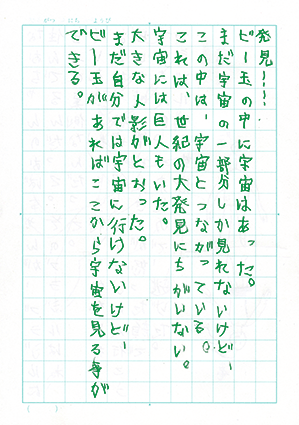 発見！！
ビー玉の中に宇宙はあった。
まだ宇宙の一部分しか見れないけど、
この中は、宇宙とつながっている。
これは、世紀の大発見にちがいない。
宇宙には巨人もいた。
大きな人影がとおった。
まだ自分では宇宙に行けないけど、
ビー玉があればここから宇宙を見る事が
できる。